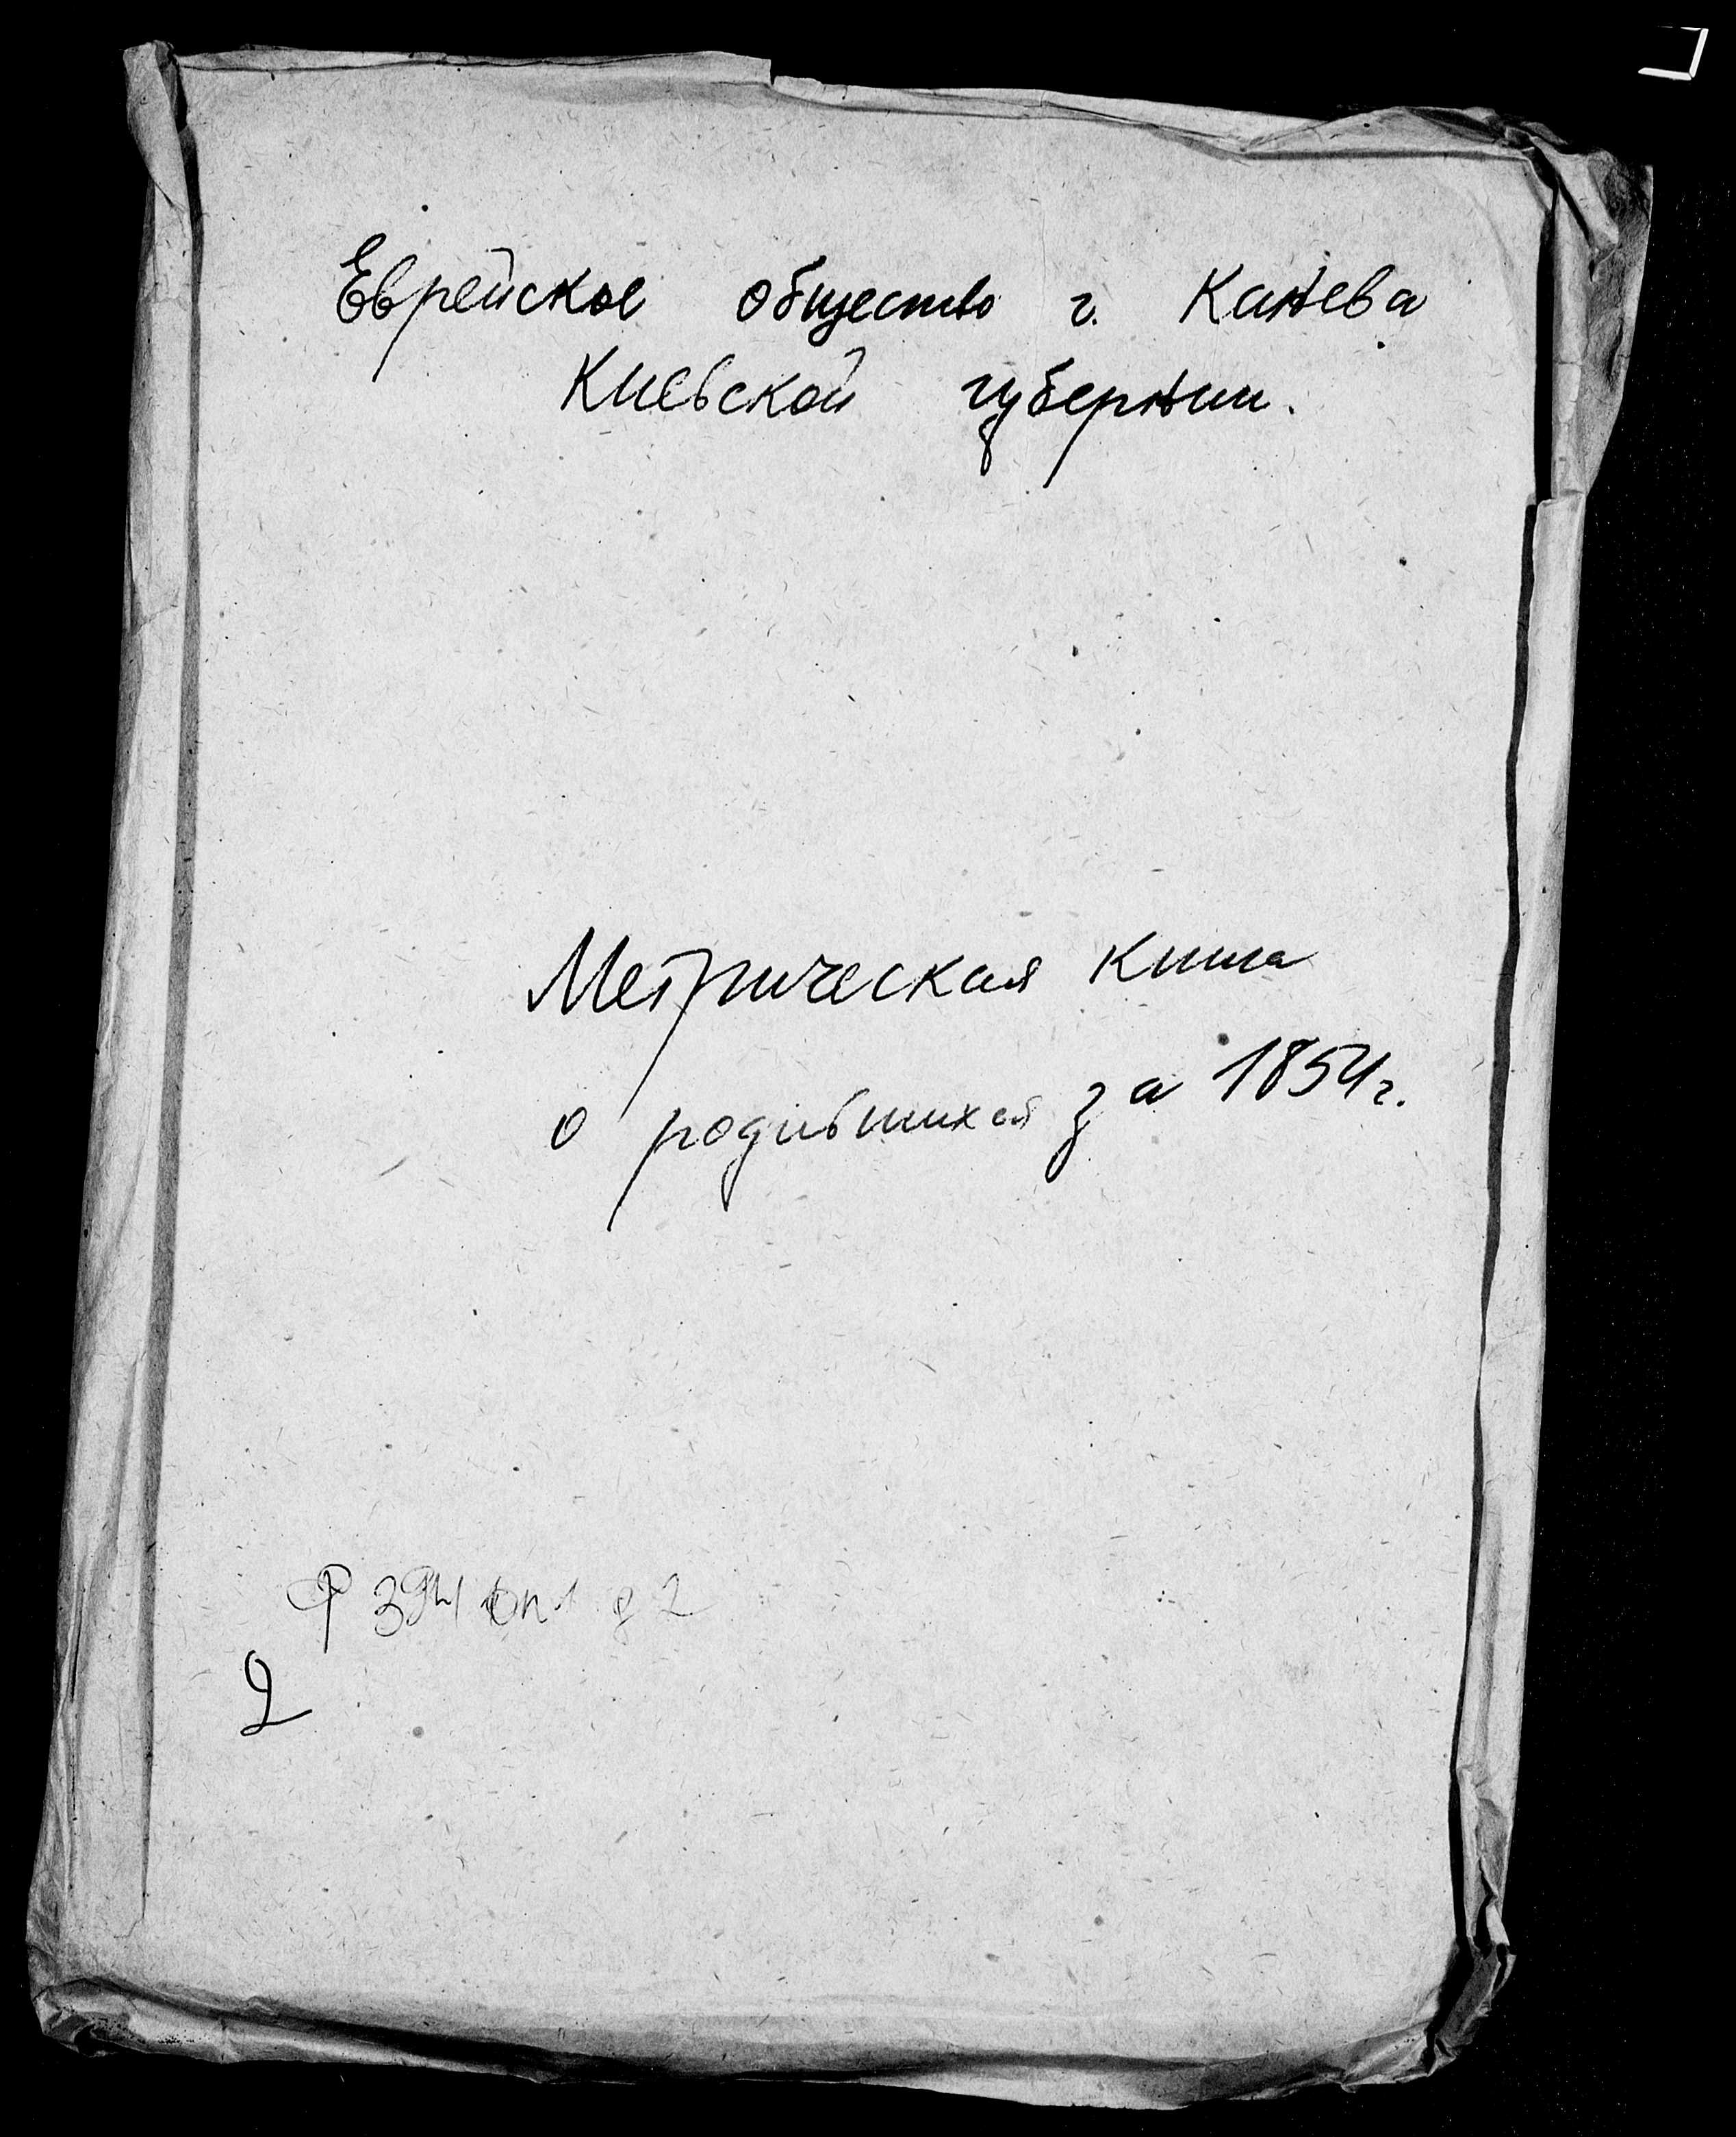 Еврейское общество г. Канева
Киевской губернии.
Метрическая книга
о родившихся за 1854г.
Ф оп 1 д 2
2